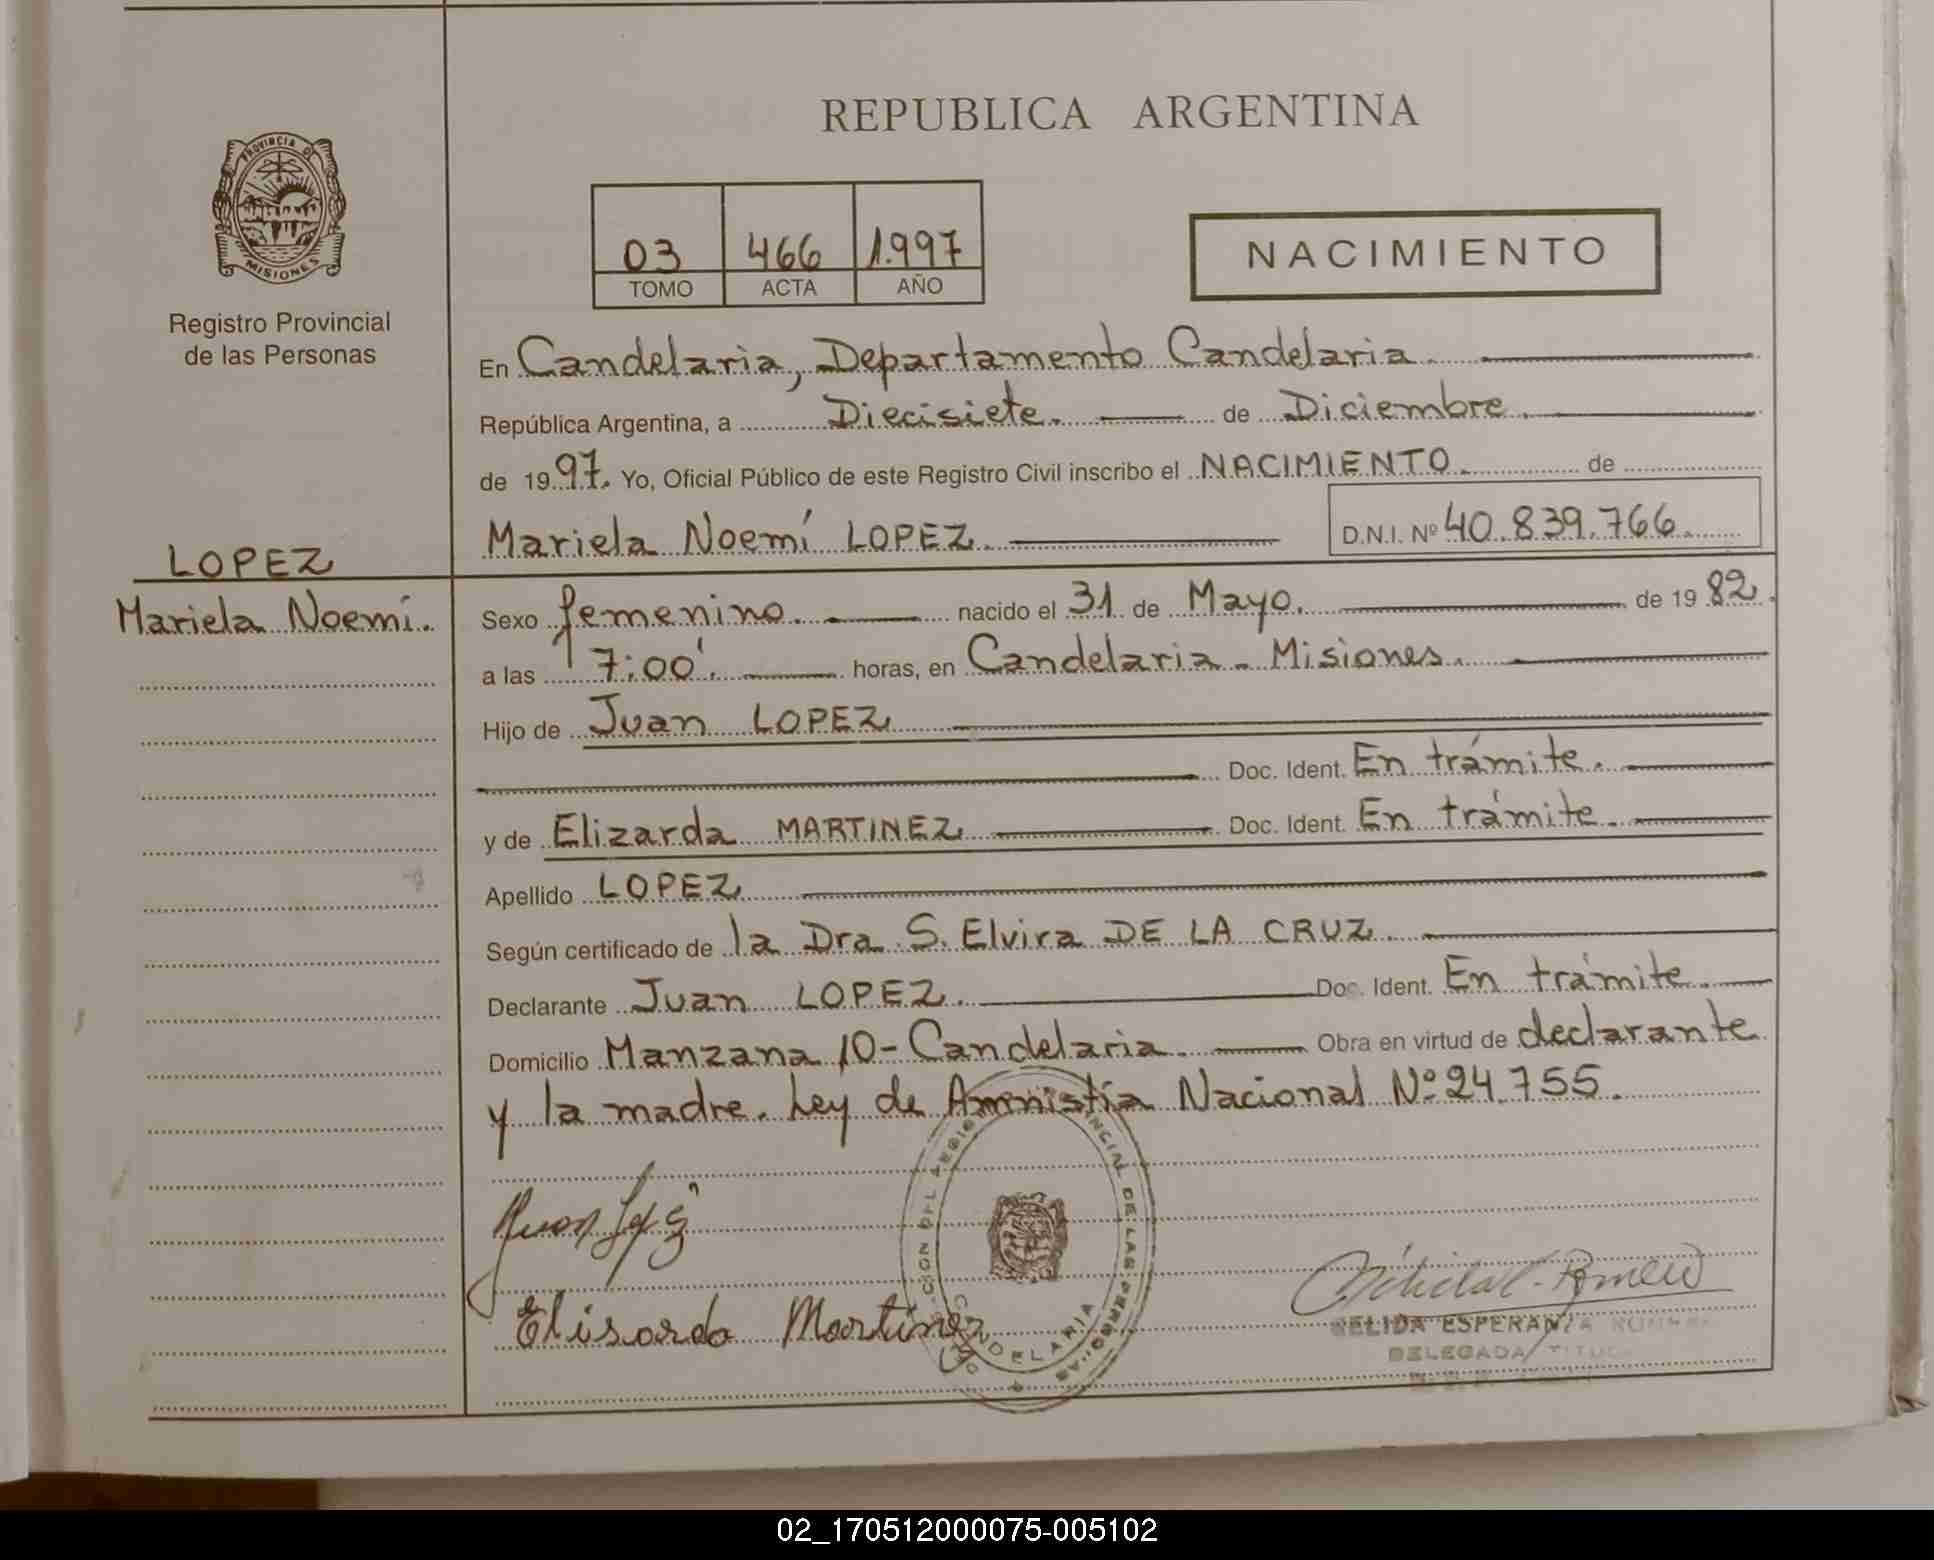 REPUBLICA ARGENTINA
PROVINCIA DE
MISIONES
Registro Provincial
de las Personas
03 466 1.997
TOMO ACTA AÑO
NACIMIENTO
En Candelaria, Departamento Candelaria.
República Argentina, a Diecisiete. de Diciembre.
de 1997. Yo, Oficial Público de este Registro Civil inscribo el NACIMIENTO de
Mariela Noemí LOPEZ. D.N.I. Nº 40.839.766.
LOPEZ
Mariela Noemí.
Sexo femenino. nacido el 31 de Mayo. de 1982.
a las 17:00'. horas, en Candelaria - Misiones.
Hijo de Juan LOPEZ
Doc. Ident. En trámite.
y de Elizarda MARTINEZ Doc. Ident. En trámite.
Apellido LOPEZ
Según certificado de la Dra S. Elvira DE LA CRUZ.
Declarante Juan LOPEZ. Doc. Ident. En trámite.
Domicilio Manzana 10 - Candelaria. Obra en virtud de declarante
y la madre. Ley de Amnistía Nacional Nº 24.755.
Juan López
Elisarda Martinez
DE LAS PERSONAS
CANDELARIA
NELIDA ESPERANZA
DELEGADA
02_170512000075-005102